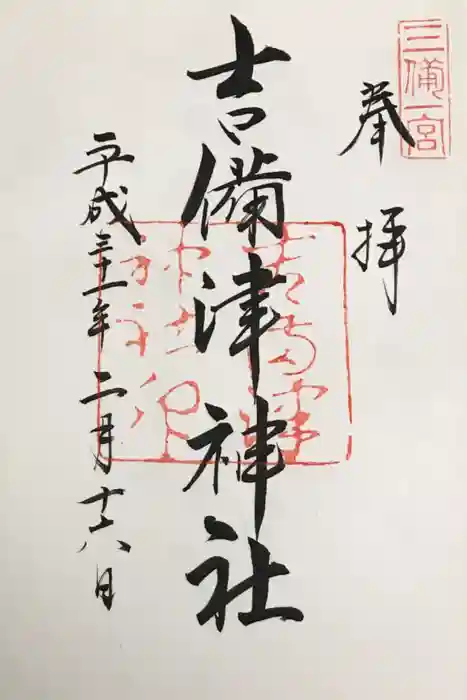 三備一宮
奉拝
吉備津神社
平成三十一年二月十六日